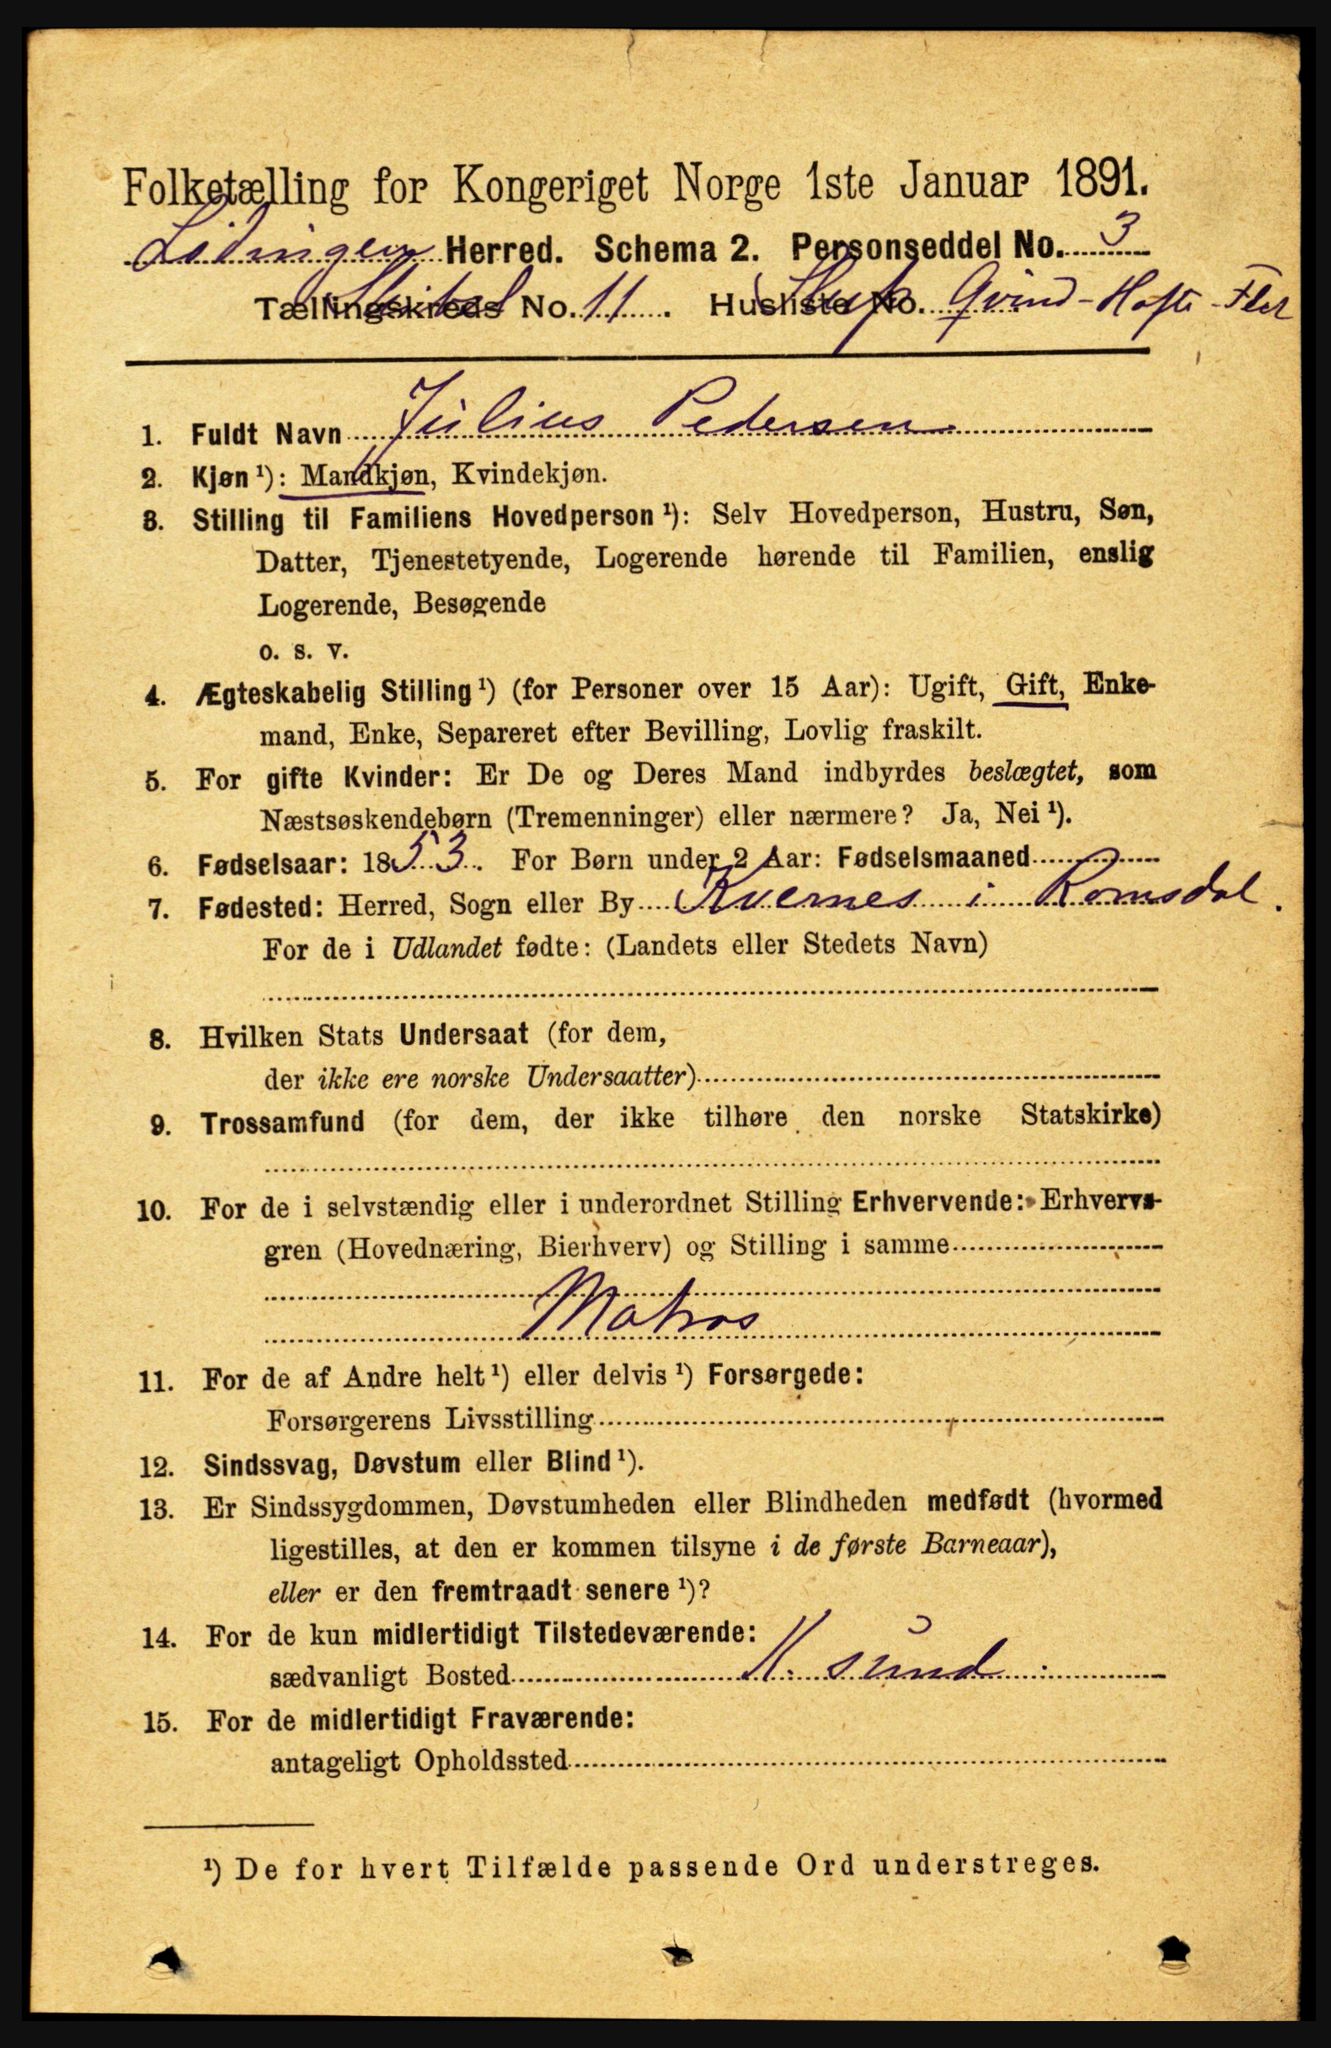 Folketælling for Kongeriget Norge 1ste Januar 1891.
Lödingen Herred. Schema 2. Personseddel No. 3
Tællingskreds No. 11. Husliste No. Skib
1. Fuldt Navn Julius Pedersen
2. Kjøn¹): Mandkjøn, Kvindekjøn.
3. Stilling til Familiens Hovedperson¹): Selv Hovedperson, Hustru, Søn,
Datter, Tjenestetyende, Logerende hørende til Familien, enslig
Logerende, Besøgende
o. s. v.
4. Ægteskabelig Stilling¹) (for Personer over 15 Aar): Ugift, Gift, Enke-
mand, Enke, Separeret efter Bevilling, Lovlig fraskilt.
5. For gifte Kvinder: Er De og Deres Mand indbyrdes beslægtet, som
Næstsøskendebørn (Tremenninger) eller nærmere? Ja, Nei¹).
6. Fødselsaar: 1853. For Børn under 2 Aar: Fødselsmaaned
7. Fødested: Herred, Sogn eller By Kvernes i Romsdal.
For de i Udlandet fødte: (Landets eller Stedets Navn)
8. Hvilken Stats Undersaat (for dem,
der ikke ere norske Undersaatter)
9. Trossamfund (for dem, der ikke tilhøre den norske Statskirke)
10. For de i selvstændig eller i underordnet Stilling Erhvervende: Erhvervs-
gren (Hovednæring, Bierhverv) og Stilling i samme
Matros
11. For de af Andre helt¹) eller delvis¹) Forsørgede:
Forsørgerens Livsstilling
12. Sindssvag, Døvstum eller Blind¹).
13. Er Sindssygdommen, Døvstumheden eller Blindheden medfødt (hvormed
ligestilles, at den er kommen tilsyne i de første Barneaar),
eller er den fremtraadt senere¹)?
14. For de kun midlertidigt Tilstedeværende:
sædvanligt Bosted K. sund
15. For de midlertidigt Fraværende:
antageligt Opholdssted
¹) De for hvert Tilfælde passende Ord understreges.